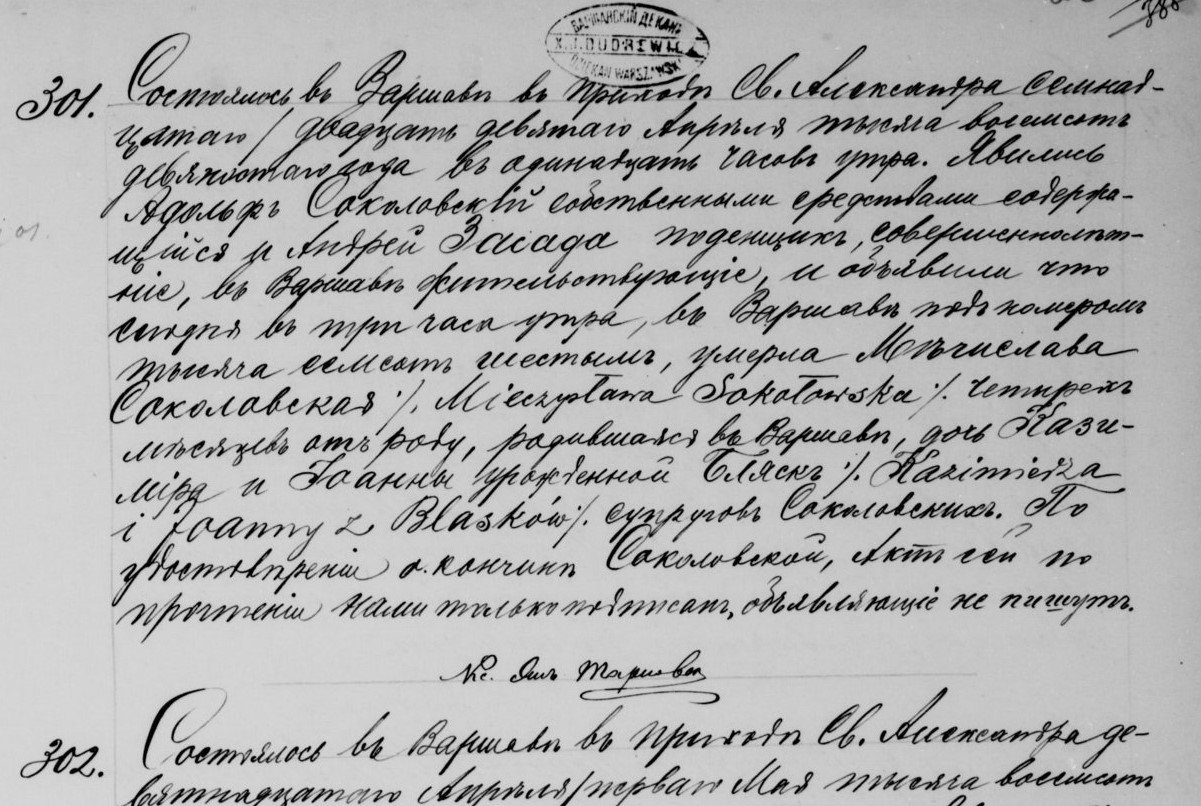 ВАРШАВСКІЙ ДЕКАНЪ
DZIEKAN WARSZAWSKI
301. Состоялось въ Варшавѣ въ приходѣ Св. Александра семнад-
цатаго / двадцать девятаго Апрѣля тысяча восемсотъ
девяностаго года въ одинадцать часовъ утра. Явились
Адольфъ Соколовскій собственными средствами содержа-
щійся и Андрей Засада поденщикъ, совершеннолѣт-
ніе, въ Варшавѣ жительствующіе, и объявили что
сегодня въ три часа утра, въ Варшавѣ подъ номеромъ
тысяча семсотъ шестымъ, умерла Мѣчислава
Соколовская /. Mieczysława Sokołowska /. четырехъ
мѣсяцевъ отъ роду, родившаяся въ Варшавѣ, дочь Кази-
міра и Іоанны урожденной Бляскъ /. Kazimierza
i Joanny z Blasków /. супруговъ Соколовскихъ. По
удостовѣреніи о кончинѣ Соколовской, Актъ сей по
прочтеніи нами только подписанъ, объявляющіе не пишутъ.
Кс.
302. Состоялось въ Варшавѣ въ приходѣ Св. Александра де-
вятнадцатаго Апрѣля / перваго Мая тысяча восемсотъ